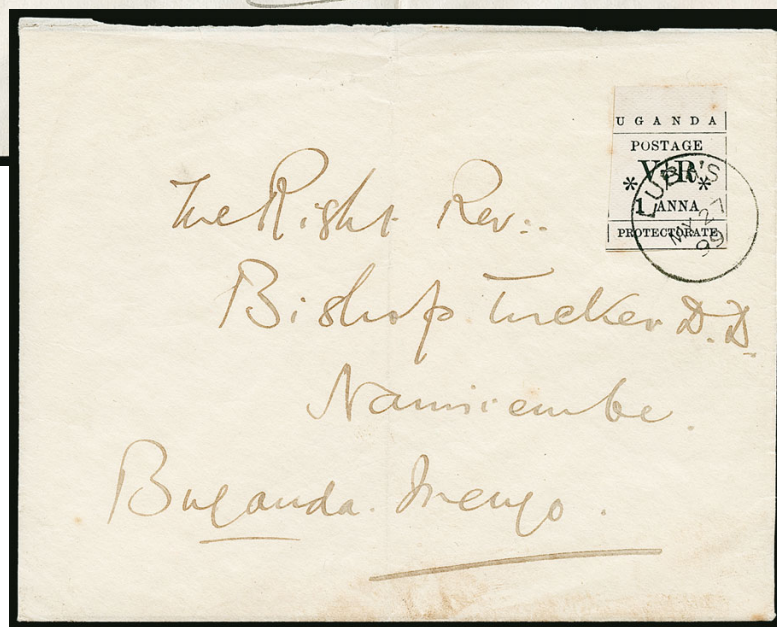 UGANDA
POSTAGE
* V. R. *
1 ANNA
PROTECTORATE
LUBA'S
MY 27
99
The Right Rev:.
Bishop Tucker D.D.
Namirembe.
Buganda. Mengo.